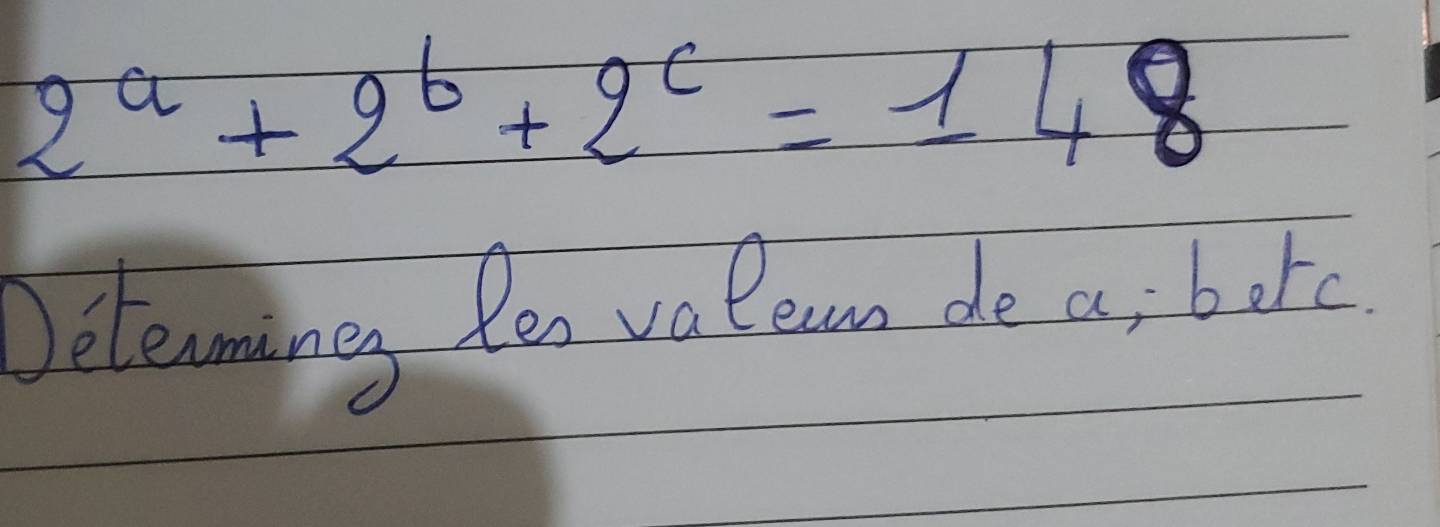 2^a + 2^b + 2^c = 148
Déterminez les valeurs de a; b et c.